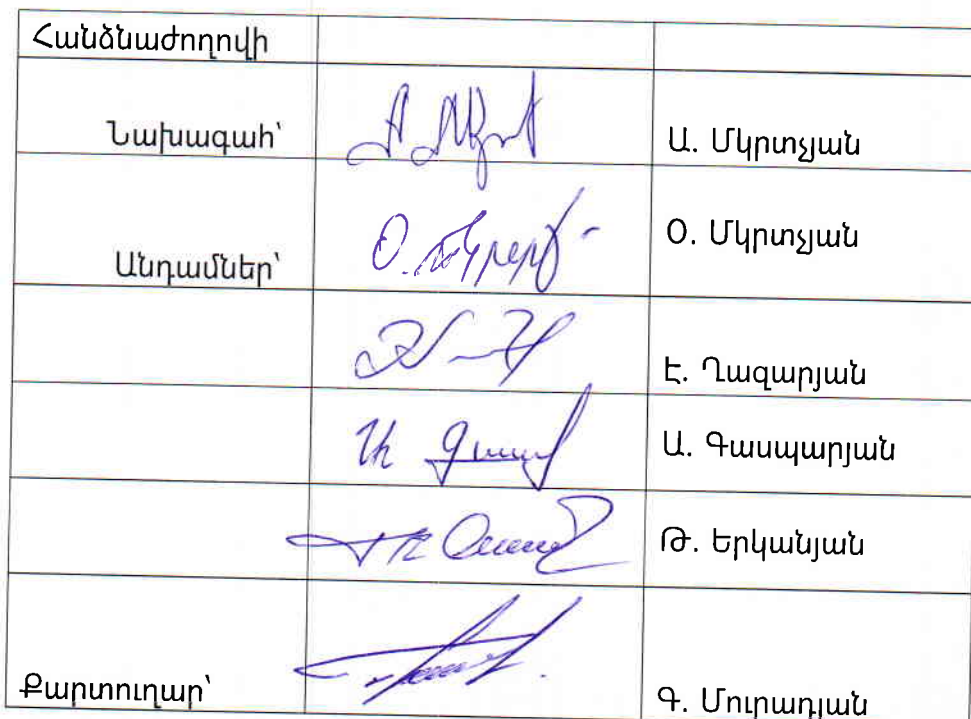 Հանձնաժողովի
Նախագահ՝ Ա. Մկրտչյան
Անդամներ՝ Օ. Մկրտչյան
Է. Ղազարյան
Ա. Գասպարյան
Թ. Երկանյան
Քարտուղար՝ Գ. Մուրադյան